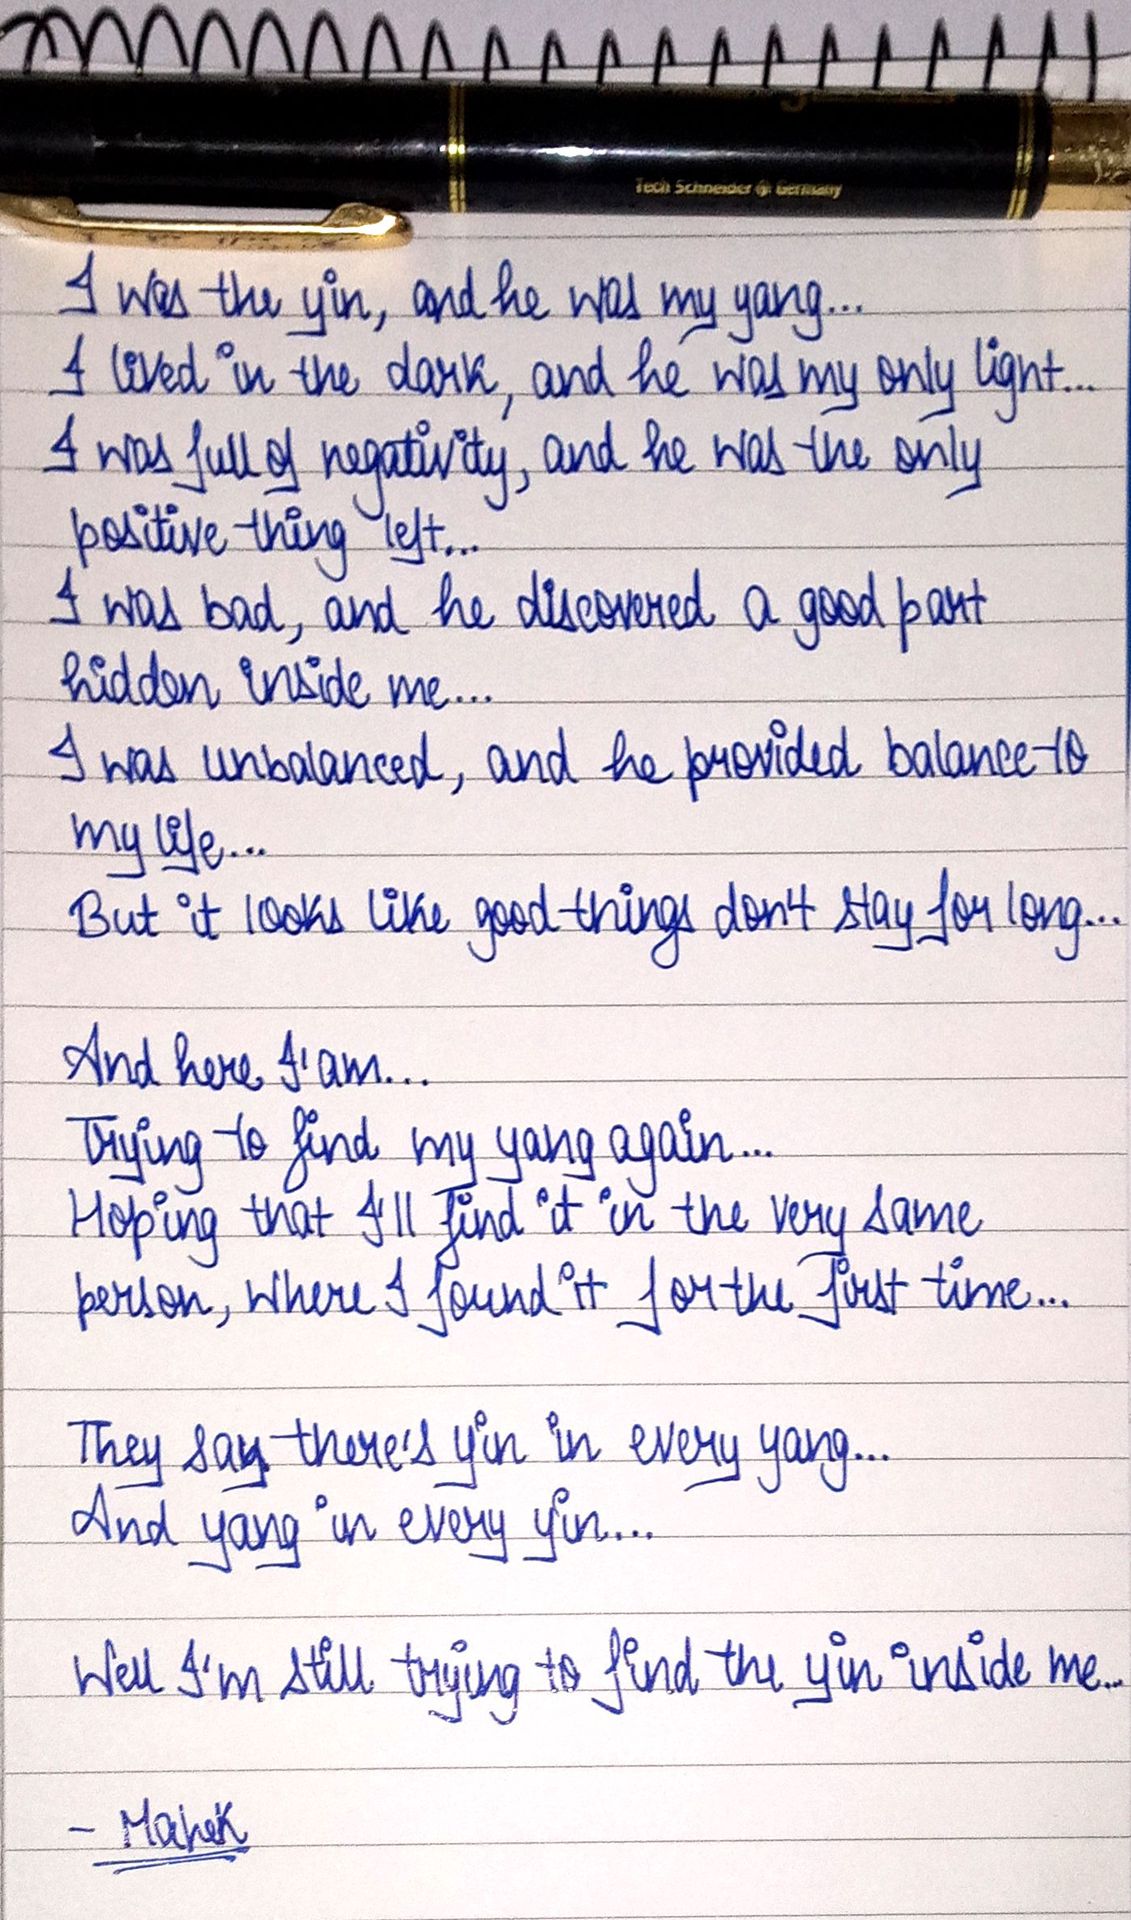 Tech Schneider Germany
I was the yin, and he was my yang...
I lived in the dark, and he was my only light...
I was full of negativity, and he was the only
positive thing left...
I was bad, and he discovered a good part
hidden inside me....
I was unbalanced, and he provided balance to
my life...
But it looks like good things don't stay for long...
And here I'am...
Trying to find my yang again...
Hoping that I'll find it in the very same
person, where I found it for the first time...
They say there's yin in every yang...
And yang in every yin...
Well I'm still trying to find the yin inside me...
- Mahek